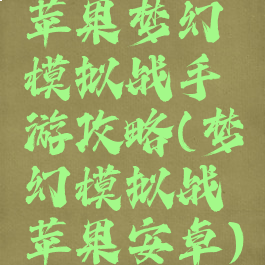 苹果梦幻
模拟战手
游攻略(梦
幻模拟战
苹果安卓)